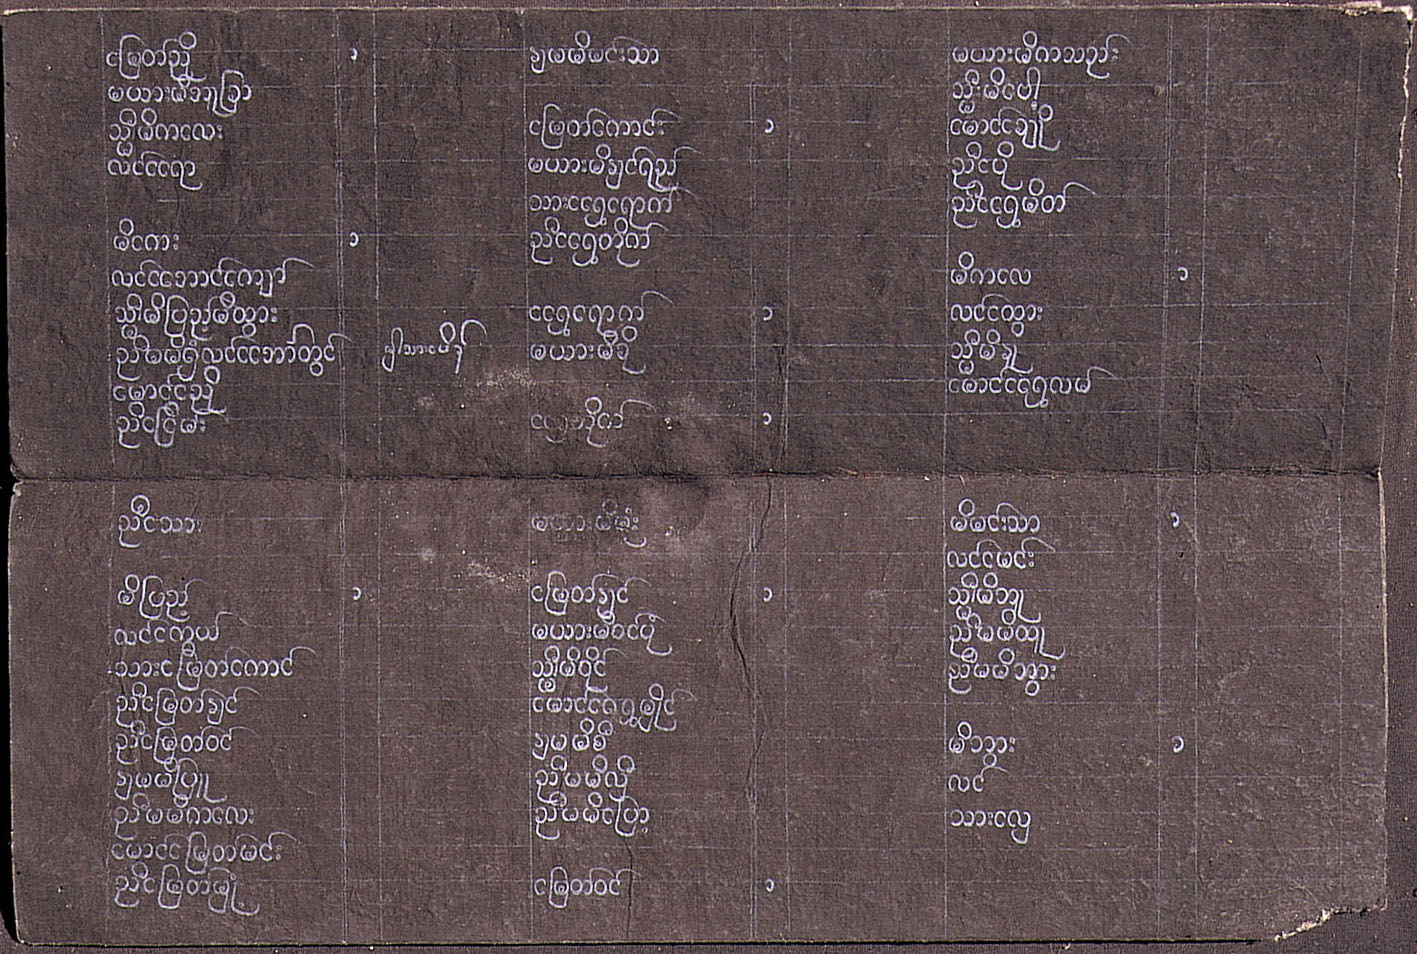 ငမြတ်ညို ၁
မယားမိဘုခြာ
သ္မီးမိကလေး
လင်ငရာ
မိကေး ၁
လင်ငအောင်ကျော်
သ္မီးမိပြည့်မိထွား
ညီမမိရုံလင်ငအော်တွင်
မောင်ငညို
ညီငငြိမ်း
ညီငသား
မိပြည့် ၁
လင်ငကွယ်
သားငမြတ်ကောင်
ညီငမြတ်ရှင်
ညီငမြတ်ဝင်
ရှမမိပြူ
ညီမမိကလေး
မောင်ငမြတ်မင်း
ညီငမြတ်မြှုံ့
ရှမမိမင်းသာ
ငမြတ်ကောင်း ၁
မယားမိရှင်ရည်
သားငရွှေရောက်
ညီငရွှေတိုက်
ငရွှေရောက် ၁
မယားမိပို
၁
ငမြတ်ရှင် ၁
မယားမိဝင်ပုံ
သ္မီးမိဝိုင်
မောင်ငရွှေမှိုင်
ရှမမိစီ
ညီမမိလှီ
ညီမမိပြော့
ငမြတ်ဝင် ၁
မယားမိကသည်း
သ္မီးမိပေါ
မောင်ငချို
ညီငပို
ညီငရွှေမိတ်
မိကလေ ၁
လင်ငထွား
သ္မီးမိရှု
မောင်ငရွှေလမ်
မိမင်းသာ ၁
လင်ငမင်း
သ္မီးမိဘျူ
ညီမမိထူ
ညီမမိဘွား
မိဘွား ၁
လင်
သားငလှ